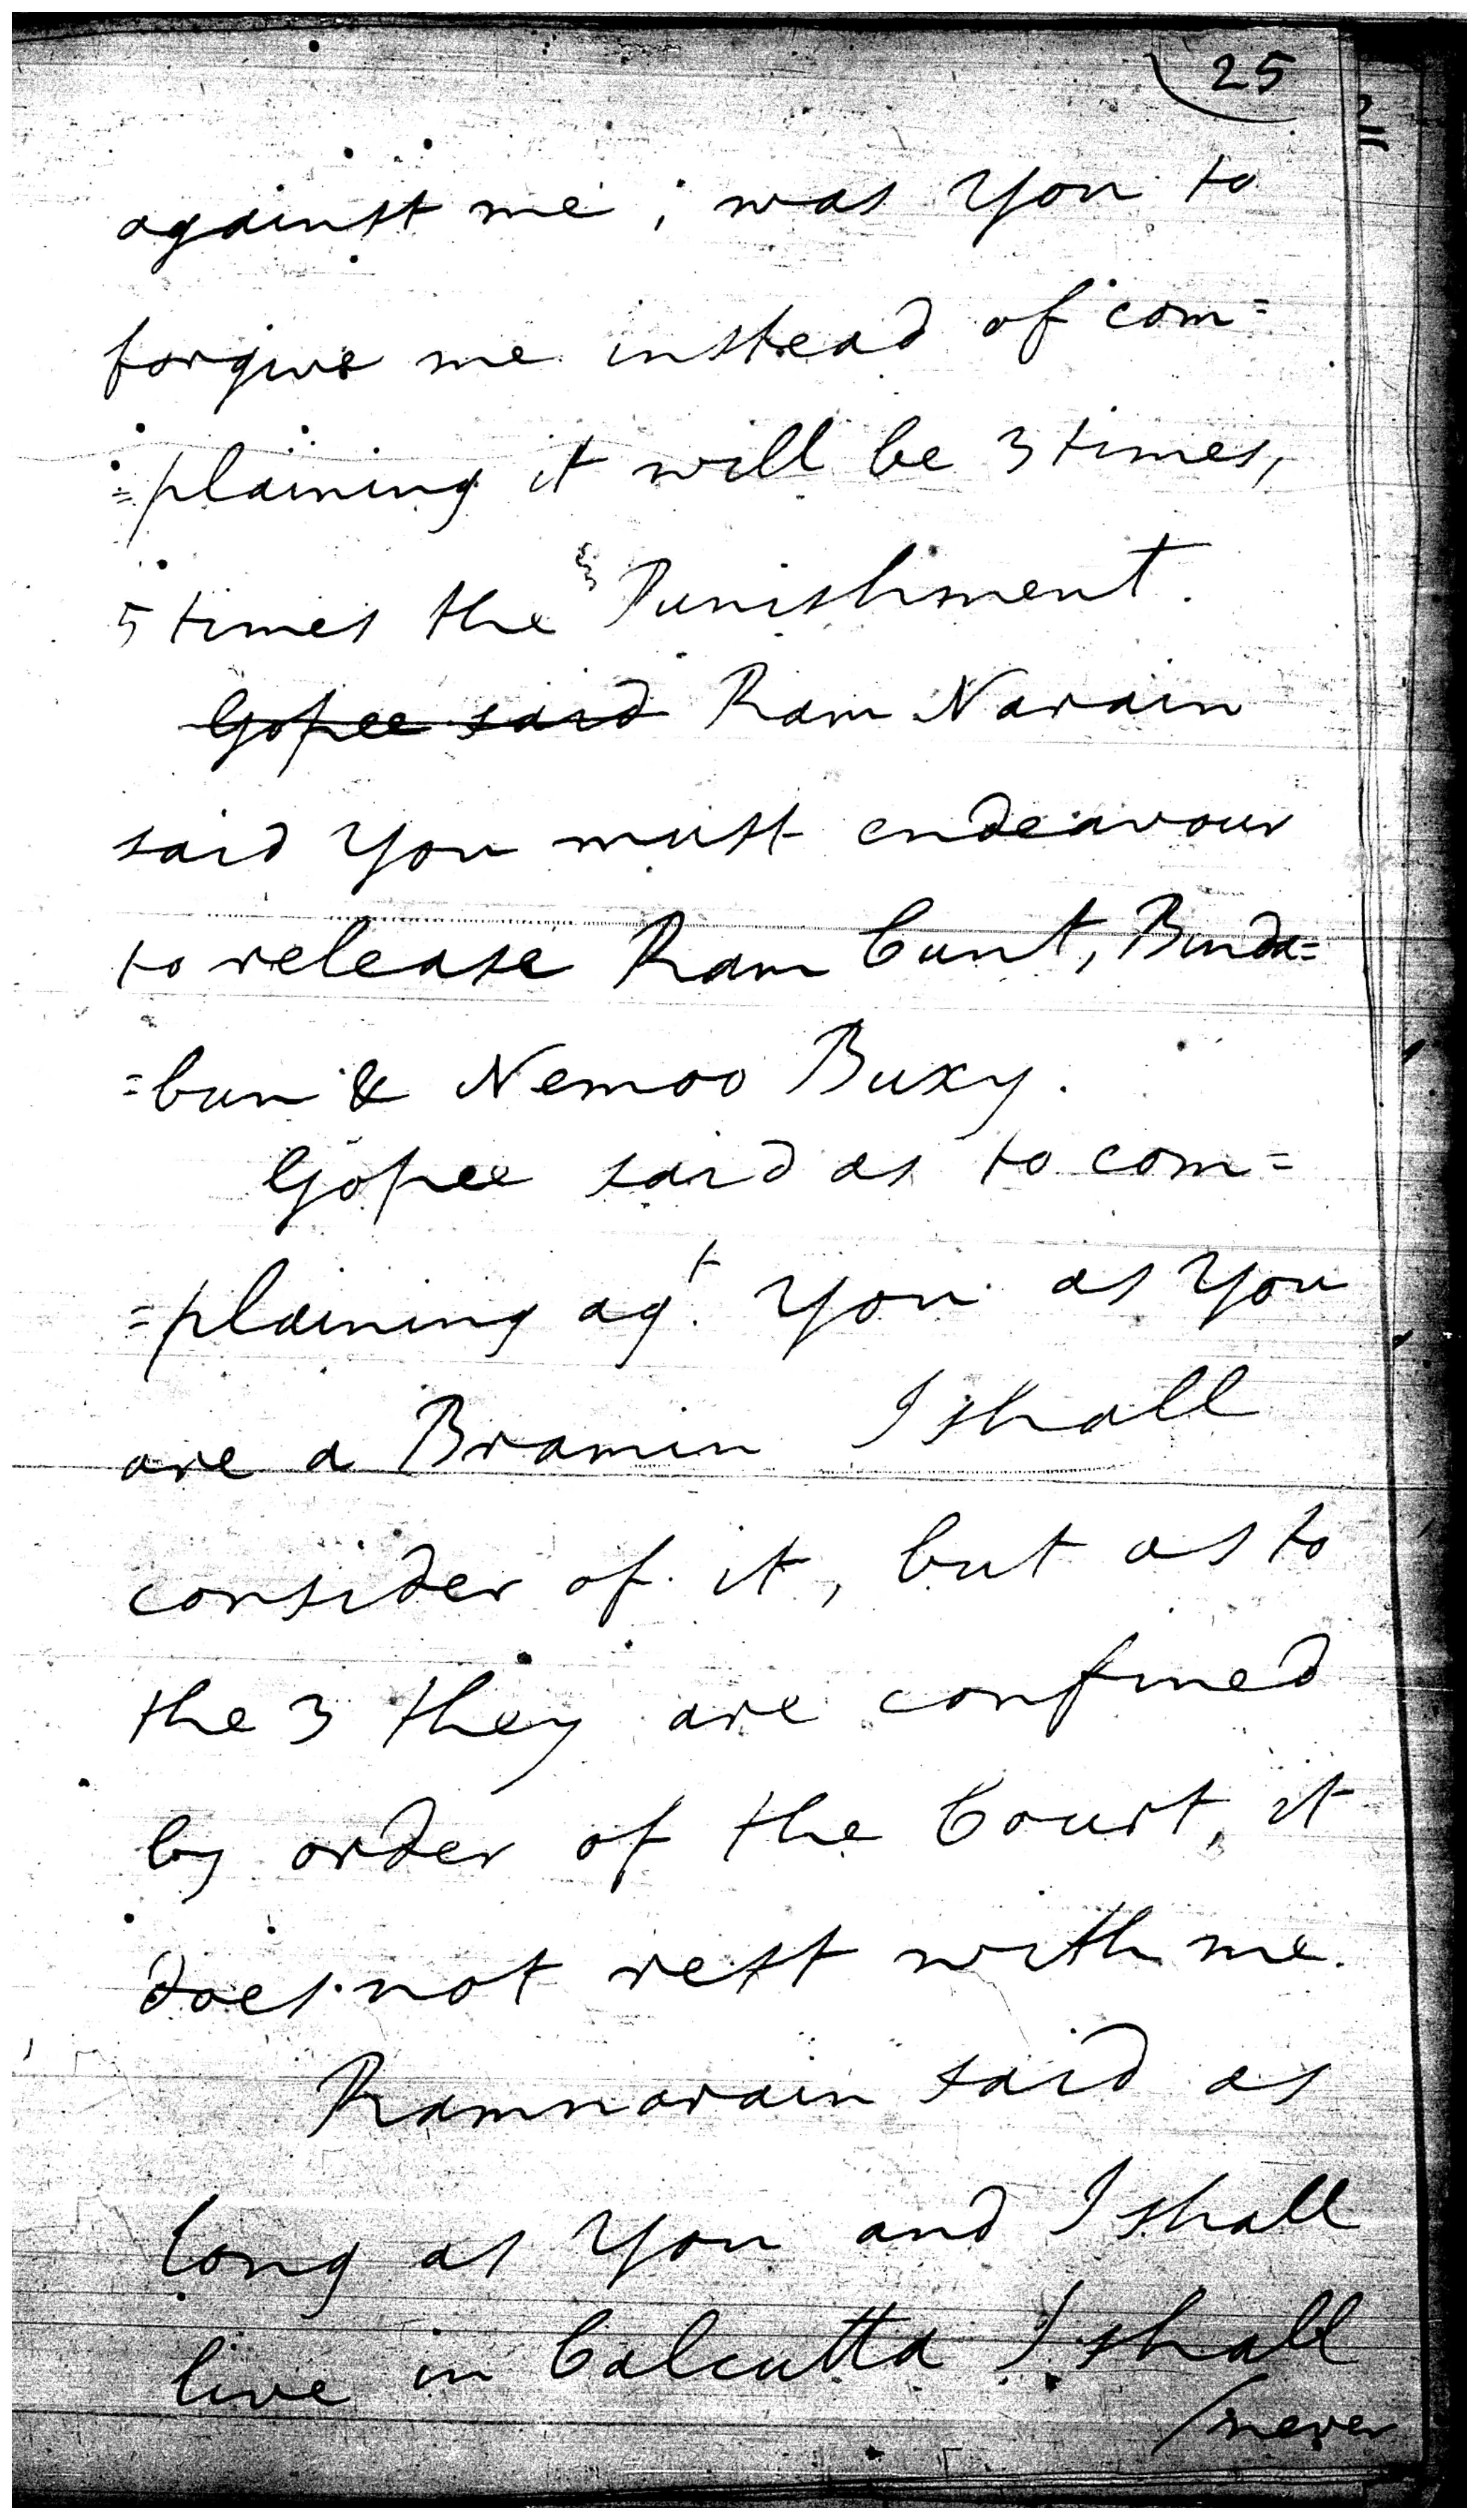 25
against me, was You to
forgive me instead of com=
=plaining it will be 3 times,
5 times the Punishment.
~~Gopee said~~ Ram Narain
said You must endeavour
to release Ram Cunt, Binda=
=bun & Nemoo Buxy.
Gopee said as to com=
=plaining agt. You as You
are a Bramin I shall
consider of it, but as to
the 3 they are confined
by order of the Court, it
does not rest with me.
Ramnarain said as
long as You and I shall
live in Calcutta I shall
/never